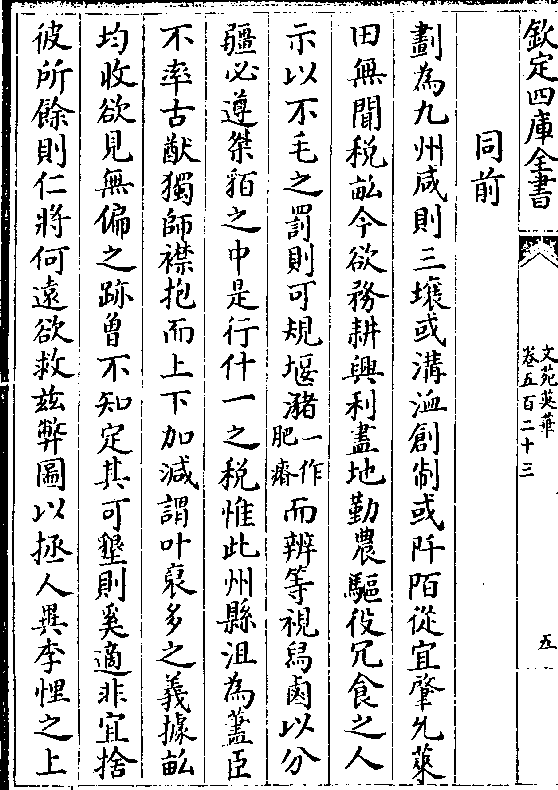 欽定四庫全書
文苑英華
卷五百二十三
五
同前
劃為九州咸則三壤或溝洫創制或阡陌從宜肇允萊
田無聞税畝今欲務耕興利盡地勤農驅役冗食之人
示以不毛之罰則可規堰瀦一作肥瘠而辨等視舄鹵以分
疆必遵桀貊之中是行什一之税惟此州縣沮為藎臣
不率古猷獨師襟抱而上下加減謂叶裒多之義據畝
均收欲見無偏之跡曾不知定其可墾則奚適非宜捨
彼所餘則仁將何遠欲救兹弊圖以拯人異李悝之上